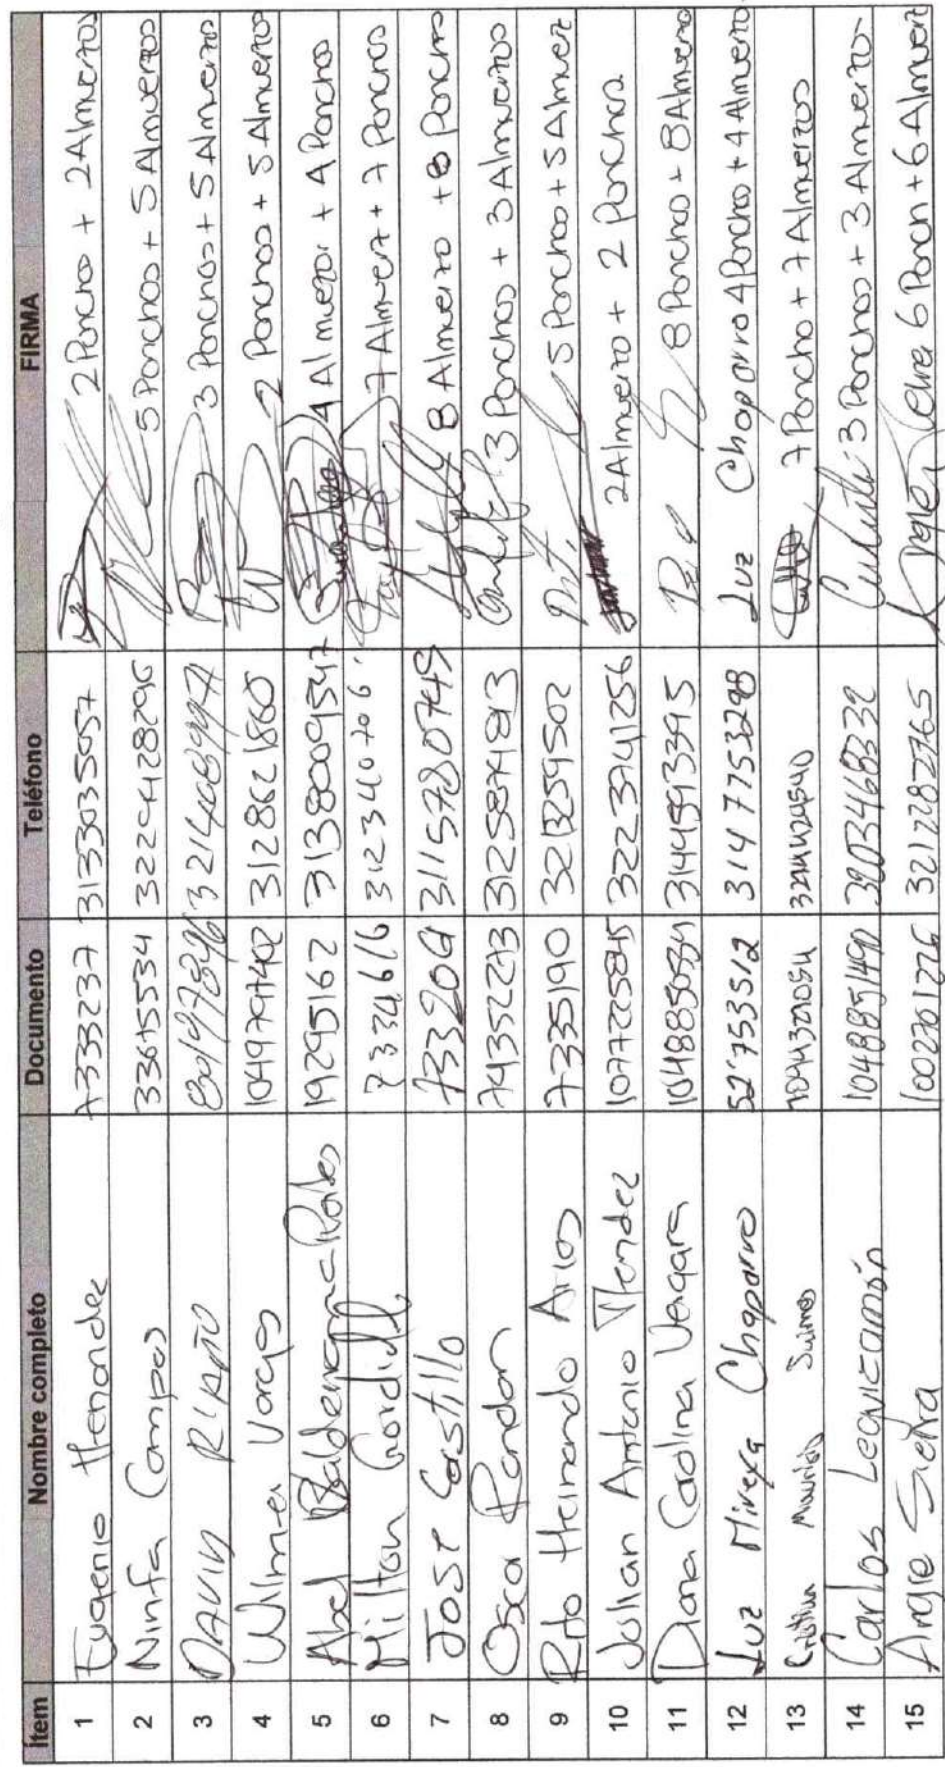 Ítem Nombre completo Documento Teléfono FIRMA
1 Eugenio Hernandez 7333237 3133035057 2 Poncho + 2 Almuerzos
2 Ninfa Campos 33675534 5 Ponchos + 5 Almuerzos
3 DAVID RIAÑO 3 Ponchos + 5 Almuerzo
4 Wilmer Vargas 1049797402 3128621860 2 Ponchos + 5 Almuerzos
5 Abel 19295162 3138009547 4 Almuerzor + 4 Ponchos
6 Milton Gordillo 7334616 3123407061 7 Almuerz + 7 Ponchos
7 JOSE CASTILLO 3115780749 8 Almuerzo + 8 Poncho
8 Oscar Rondon 74352273 3125874813 3 Ponchos + 3 Almuerzos
9 Rito Hernando Arias 7335190 3213259502 5 Ponchos + 5 Almuerz
10 Julian Antonio Mendez 1077225845 3223741256 2 Almuerzo + 2 Ponchos
11 Diana Carolina Vergara 1048850534 3144593395 8 Ponchos + 8 Almuerzo
12 Luz Mireya Chaparro 52'753512 3147753298 Luz Chaparro 4 Poncho + 4 Almuerzo
13 Mauricio 7 Poncho + 7 Almuerzos
14 Carlos Leguizamón 1048851490 3203468332 3 Ponchos + 3 Almuerzo
15 Angie Sierra 1002761276 3212282765 6 Ponch + 6 Almuerz